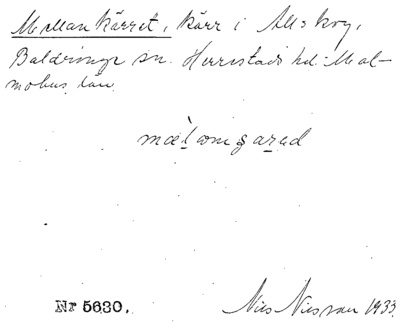 Mellankärret, kärr i Alls kog,
Baldringe sn. Herrestads hd. Mal-
möhus län.
Nr 5630.
Nils Nilsson 1933.